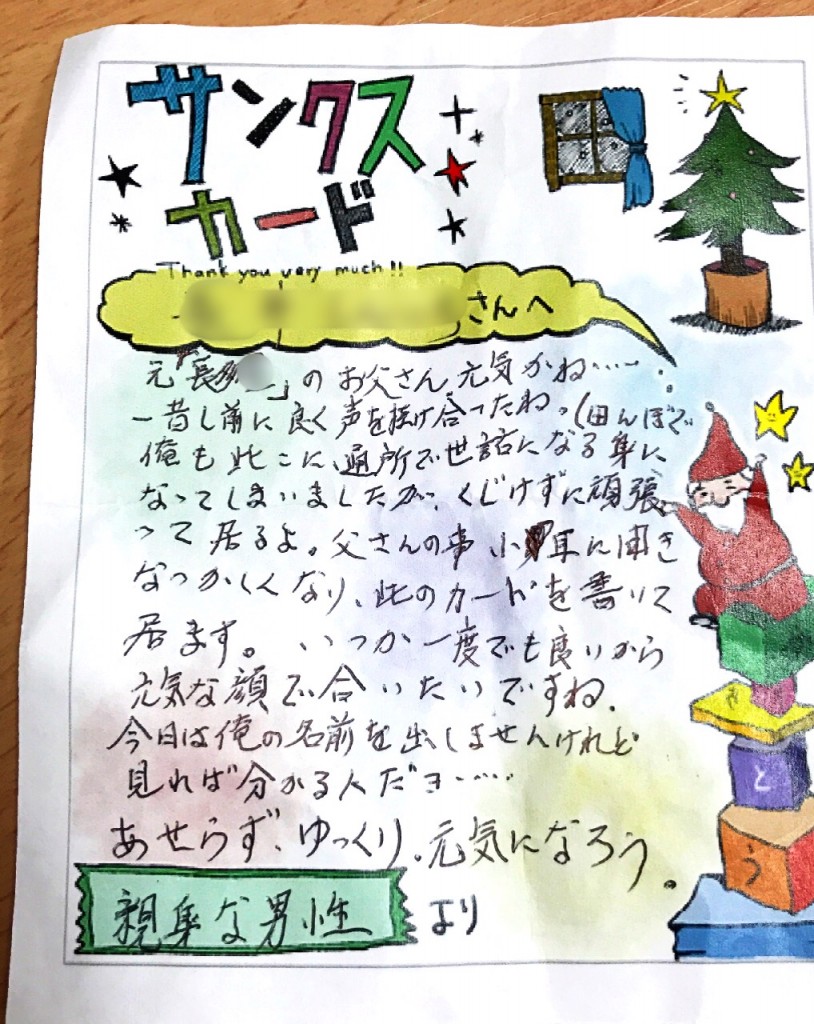 サンクス
カード
Thank you very much!!
さんへ
元「長 」のお父さん、元気かね……
一昔し前に良く声を掛け合ったね。(田んぼで
俺も此こに、通所で世話になる身に
なってしまいましたが、くじけずに頑張
って居るよ。父さんの事小耳に聞き
なつかしくなり、此のカードを書いて
居ます。いつか一度でも良いから
元気な顔で合いたいですね。
今日は俺の名前を出しませんけれど
見れば分かる人だヨ……
あせらず、ゆっくり。元気になろう。
な男性 より
き
と
う